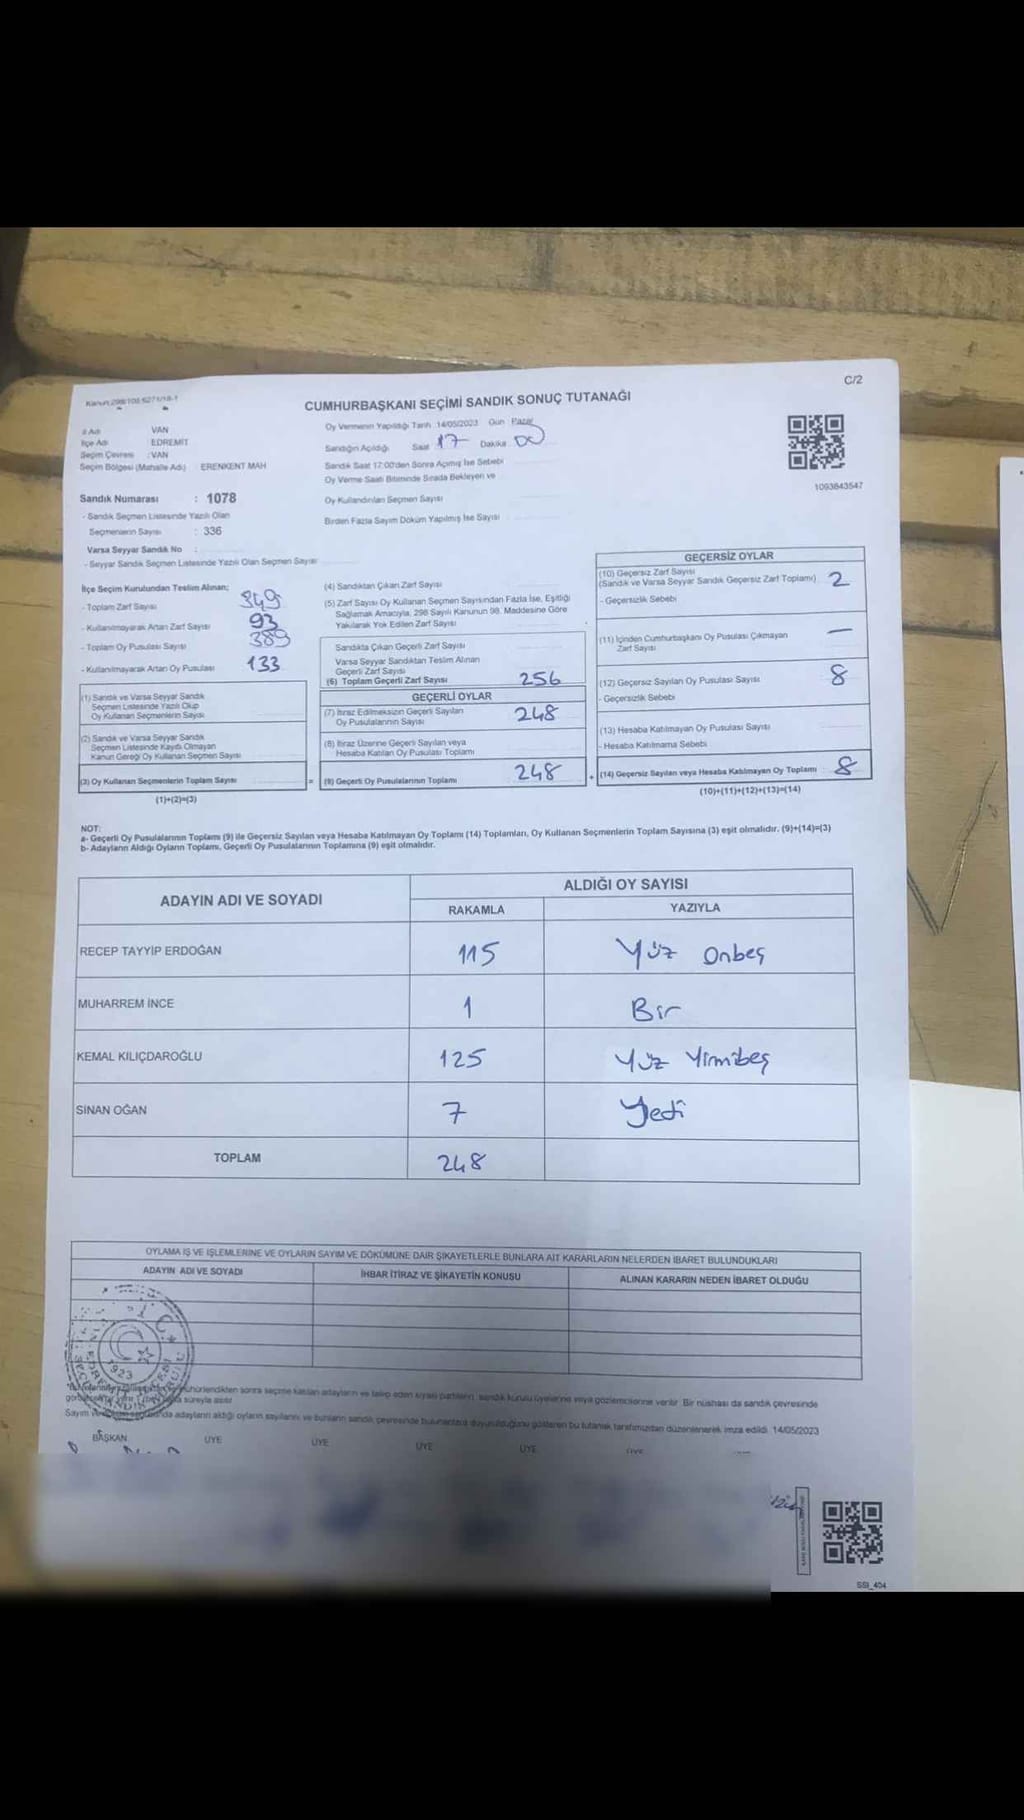 C/2
CUMHURBAŞKANI SEÇİMİ SANDIK SONUÇ TUTANAĞI
İl Adı VAN
İlçe Adı : EDREMİT
Seçim Çevresi : VAN
Seçim Bölgesi (Mahalle Adı) ERENKENT MAH
Sandık Numarası : 1078
- Sandık Seçmen Listesinde Yazılı Olan
Seçmenlerin Sayısı : 336
Varsa Seyyar Sandık No :
- Seyyar Sandık Seçmen Listesinde Yazılı Olan Seçmen Sayısı
Oy Vermenin Yapıldığı Tarih :14/05/2023 Gün : Pazar
Sandığın Açıldığı Saat 17 Dakika 00
Sandık Saat 17:00'den Sonra Açımış İse Sebebi
Oy Verme Saati Bitiminde Sırada Bekleyen ve
Oy Kullandırılan Seçmen Sayısı
Birden Fazla Sayım Döküm Yapılmış İse Sayısı
1093843547
İlçe Seçim Kurulundan Teslim Alınan;
- Toplam Zarf Sayısı 349
- Kullanılmayarak Artan Zarf Sayısı 93
- Toplam Oy Pusulası Sayısı 389
- Kullanılmayarak Artan Oy Pusulası 133
(1) Sandık ve Varsa Seyyar Sandık
Seçmen Listesinde Yazılı Olup
Oy Kullanan Seçmenlerin Sayısı
(2) Sandık ve Varsa Seyyar Sandık
Seçmen Listesinde Kaydı Olmayan
Kanun Gereği Oy Kullanan Seçmen Sayısı
(3) Oy Kullanan Seçmenlerin Toplam Sayısı =
(1)+(2)=(3)
(4) Sandıktan Çıkan Zarf Sayısı
(5) Zarf Sayısı Oy Kullanan Seçmen Sayısından Fazla İse, Eşitliği
Sağlamak Amacıyla, 298 Sayılı Kanunun 98. Maddesine Göre
Yakılarak Yok Edilen Zarf Sayısı
Sandıkta Çıkan Geçerli Zarf Sayısı
Varsa Seyyar Sandıktan Teslim Alınan
Geçerli Zarf Sayısı
(6) Toplam Geçerli Zarf Sayısı 256
GEÇERLİ OYLAR
(7) İtiraz Edilmeksizin Geçerli Sayılan
Oy Pusulalarının Sayısı 248
(8) İtiraz Üzerine Geçerli Sayılan veya
Hesaba Katılan Oy Pusulası Toplamı
(9) Geçerli Oy Pusulalarının Toplamı 248 +
GEÇERSİZ OYLAR
(10) Geçersiz Zarf Sayısı
(Sandık ve Varsa Seyyar Sandık Geçersiz Zarf Toplamı) 2
- Geçersizlik Sebebi
(11) İçinden Cumhurbaşkanı Oy Pusulası Çıkmayan
Zarf Sayısı —
(12) Geçersiz Sayılan Oy Pusulası Sayısı 8
- Geçersizlik Sebebi
(13) Hesaba Katılmayan Oy Pusulası Sayısı
- Hesaba Katılmama Sebebi
(14) Geçersiz Sayılan veya Hesaba Katılmayan Oy Toplamı 8
(10)+(11)+(12)+(13)=(14)
NOT:
a- Geçerli Oy Pusulalarının Toplamı (9) ile Geçersiz Sayılan veya Hesaba Katılmayan Oy Toplamı (14) Toplamları, Oy Kullanan Seçmenlerin Toplam Sayısına (3) eşit olmalıdır. (9)+(14)=(3)
b- Adayların Aldığı Oyların Toplamı, Geçerli Oy Pusulalarının Toplamına (9) eşit olmalıdır.
ADAYIN ADI VE SOYADI ALDIĞI OY SAYISI
RAKAMLA YAZIYLA
RECEP TAYYİP ERDOĞAN 115 Yüz Onbeş
MUHARREM İNCE 1 Bir
KEMAL KILIÇDAROĞLU 125 Yüz Yirmibeş
SİNAN OĞAN 7 Yedi
TOPLAM 248
OYLAMA İŞ VE İŞLEMLERİNE VE OYLARIN SAYIM VE DÖKÜMÜNE DAİR ŞİKAYETLERLE BUNLARA AİT KARARLARIN NELERDEN İBARET BULUNDUKLARI
ADAYIN ADI VE SOYADI İHBAR İTİRAZ VE ŞİKAYETİN KONUSU ALINAN KARARIN NEDEN İBARET OLDUĞU
T.C.
1923
mühürlendikten sonra seçime katılan adayların ve talep eden siyasi partilerin sandık kurulu üyelerine veya gözlemcilerine verilir. Bir nüshası da sandık çevresinde
süreyle asılır
Sayım ve adayların aldığı oyların sayılarını ve bunların sandık çevresinde bulunanlara duyurulduğunu gösteren bu tutanak tarafımızdan düzenlenerek imza edildi. 14/05/2023
BAŞKAN ÜYE ÜYE ÜYE ÜYE ÜYE
SSI_404